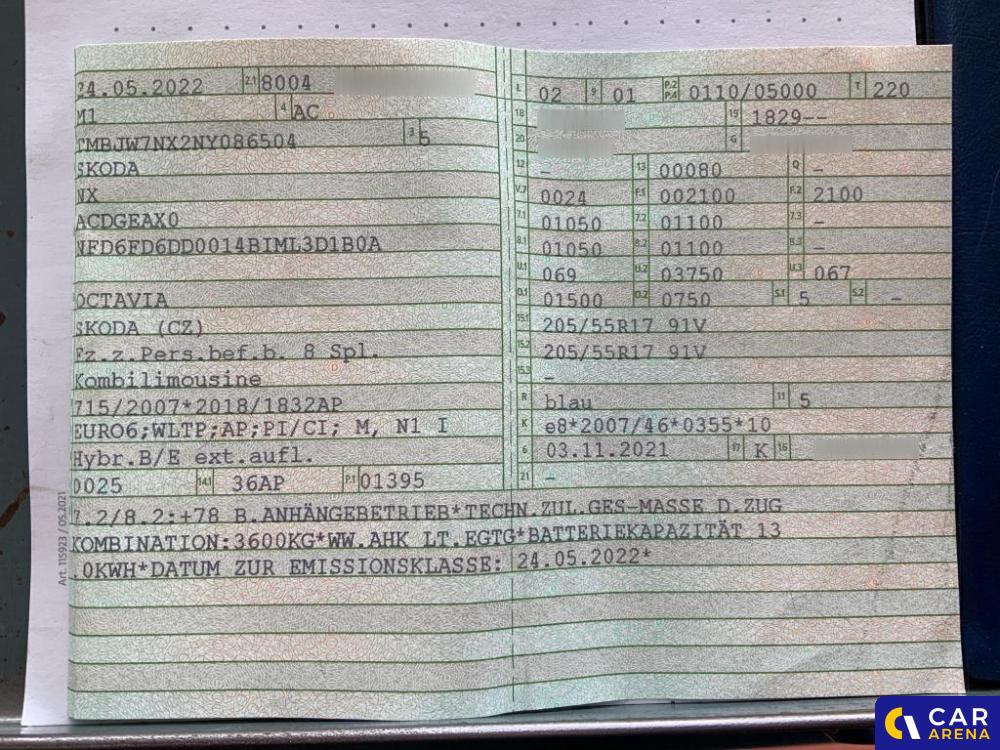 24.05.2022 2.1 8004
M1 4 AC
TMBJW7NX2NY086504 3 5
SKODA
NX
ACDGEAX0
NFD6FD6DD0014BIML3D1B0A
OCTAVIA
SKODA (CZ)
Fz.z.Pers.bef.b. 8 Spl.
Kombilimousine
715/2007*2018/1832AP
EURO6;WLTP;AP;PI/CI; M, N1 I
Hybr.B/E ext.aufl.
0025 14.1 36AP P.1 01395
L 02 9 01 P.2 P.4 0110/05000 T 220
18 19 1829--
20 G
12 - 13 00080 Q -
V.7 0024 F.1 002100 F.2 2100
7.1 01050 7.2 01100 7.3 -
8.1 01050 8.2 01100 8.3 -
U.1 069 U.2 03750 U.3 067
O.1 01500 O.2 0750 S.1 5 S.2 -
15.1 205/55R17 91V
15.2 205/55R17 91V
15.3 -
R blau 11 5
K e8*2007/46*0355*10
6 03.11.2021 17 K 16
21 -
7.2/8.2:+78 B.ANHÄNGEBETRIEB*TECHN.ZUL.GES-MASSE D.ZUG
KOMBINATION:3600KG*WW.AHK LT.EGTG*BATTERIEKAPAZITÄT 13
.0KWH*DATUM ZUR EMISSIONSKLASSE: 24.05.2022*
Art. 115923 / 05.2021
CAR
ARENA